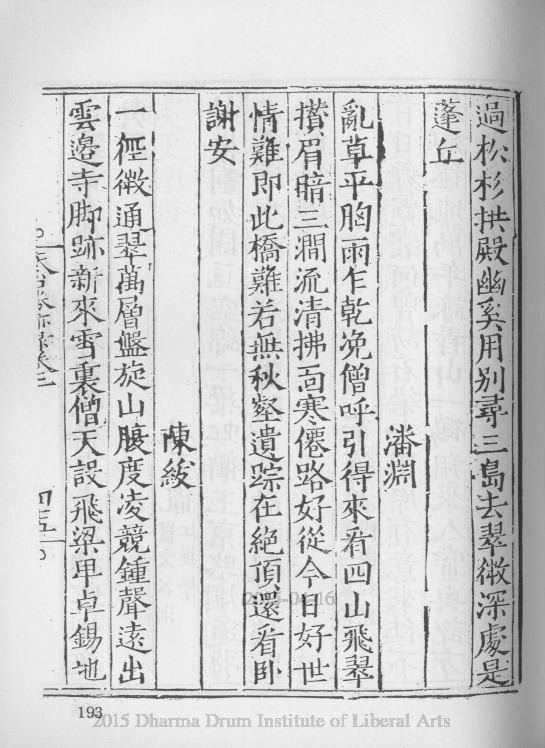 過松杉拱殿幽奚用別尋三島去翠微深處是
蓬丘
潘淵
亂草平胸雨乍乾免僧呼引得來看四山飛翠
攢眉暗三澗流清拂面寒僊路好從今日好世
情難即此橋難若無秋壑遺踪在絕頂還看卧
謝安
陳綬
一徑微通翠萬層盤旋山腰度凌競鍾聲遠出
雲邊寺脚跡新來雪裏僧天設飛梁甲卓錫地
天台勝跡錄卷二
四五
193
2015 Dharma Drum Institute of Liberal Arts